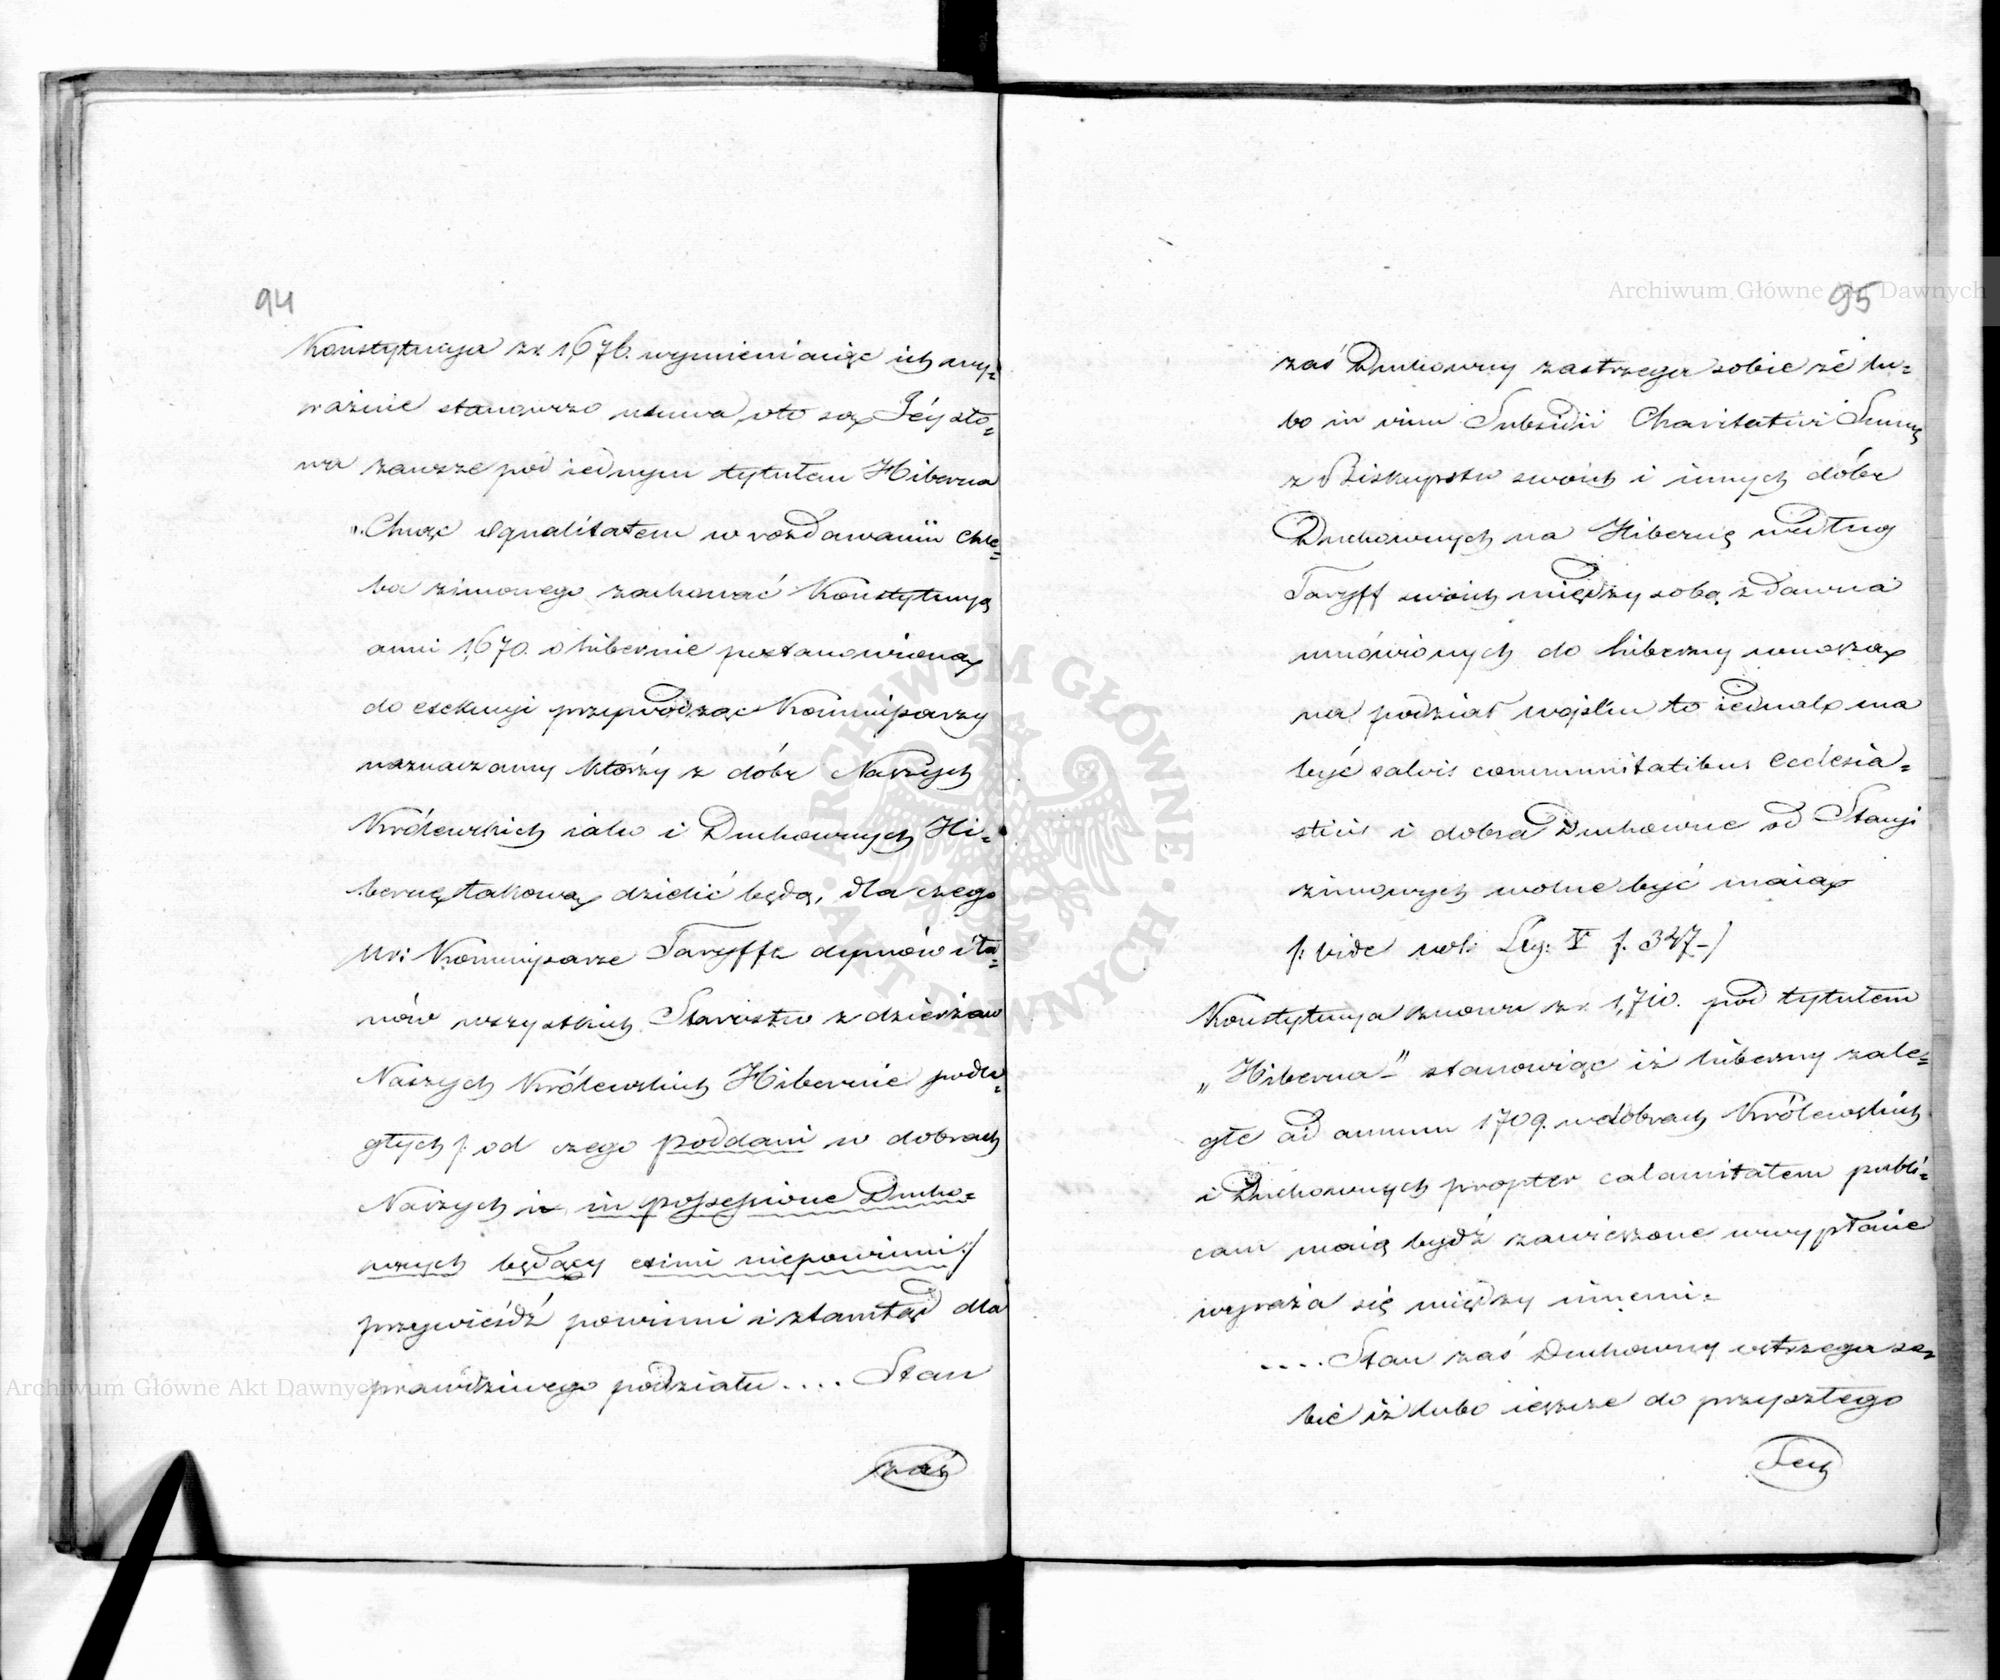 94
Konstytucya z r. 1676. wymieniaiąc ich wy=
raźnie stanowczo usuwa, oto są Jéy sło=
wa zawsze pod iednym tytułem Hiberna
"Chcąc equalitatem w rozdawaniu chle=
ba zimowego zachować Konstytucyą
anni 1670. o hibernie postanowioną
do exekucyi przywodząc Kommissarzy
naznaczamy którzy z dóbr Naszych
Królewskich iako i Duchownych Hi=
bernę takową dzielić będą, dla czego
Kommissarze Taryffę dymów i ła=
nów wszystkich Starostw z dzierżaw
Naszych Królewskich Hibernie podle=
głych /: od czego poddani w dobrach
Naszych in possessione Ducho=
wnych będący eximi niepowinni :/
przywieśdź powinni i ztamtąd dla
prawdziwego podziału .... Stan
zaś
95
zaś Duchowny zastrzega sobie że lu=
bo in vim Subsidii Charitativi Summę
z Biskupstw swoich i innych dóbr
Duchownych na Hibernę według
Taryff swoich między sobą z dawna
umówionych do hiberny wnoszą
na podział wojsku to iednak ma
być salvis communitatibus Ecclesia=
sticis i dobra Duchowne od Stacyi
zimowych wolne być maią
/: vide vol: Leg: V f. 347 -/
Konstytucya znowu z r. 1710. pod tytułem
„Hiberna" stanowiąc iż hiberny zale=
głe ad annum 1709. w dobrach Królewskich
i Duchownych propter calamitatem publi=
cam maią bydź zawieszone w wypłacie
wyraża się między innemi =
.... Stan zaś Duchowny ostrzega so=
bie iż lubo ieszcze do przyszłego
Sey
Archiwum Główne Akt Dawnych
Archiwum Główne Akt Dawnych
ARCHIWUM GŁÓWNE AKT DAWNYCH